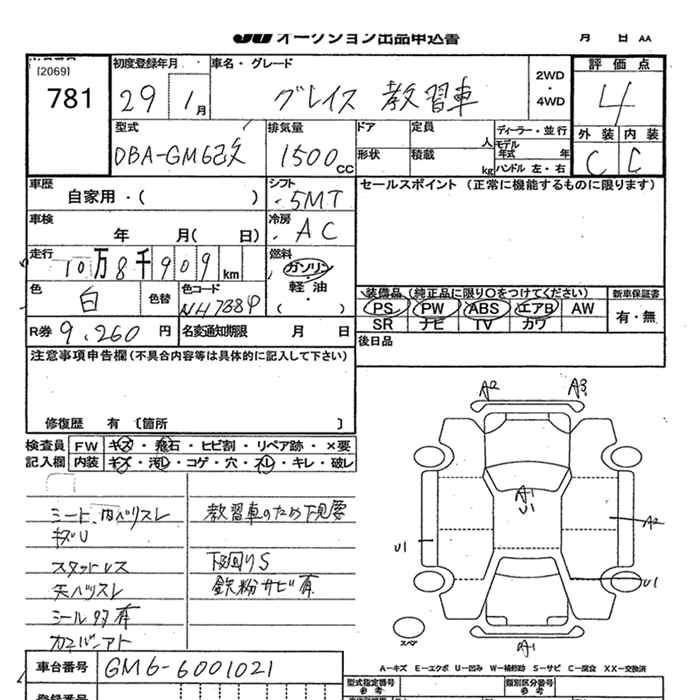 JU オークション出品申込書
月 日 AA
[2069]
781
初度登録年月
29 1月
車名・グレード
グレイス 教習車
2WD
・
4WD
評価点
4
外装 内装
C C
型式
DBA-GM6改
排気量
1500cc
ドア
形状
定員 人
積載 kg
ディーラー・並行
モデル年式 年
ハンドル 左・右
車歴
自家用・( )
シフト
5MT
セールスポイント (正常に機能するものに限ります)
車検
年 月( 日)
冷房
AC
走行
10万8千909km
燃料
ガソリン
軽油
・( )
色
白
色替
色コード
NH788P
装備品(純正品に限り○をつけてください)
PS PW ABS エアB AW
SR ナビ TV カワ
新車保証書
有・無
R券 9,260円
名変通知期限 月 日
後日品
注意事項申告欄(不具合内容等は具体的に記入して下さい)
修復歴 有 〔箇所 〕
検査員
記入欄
FW キズ・飛石・ヒビ割・リペア跡・×要
内装 キズ・汚レ・コゲ・穴・スレ・キレ・破レ
シート、内ハリスレ
キズU
スタッドレス
天ハリスレ
シール跡有
教習車のため下見要
下回りS
鉄粉サビ有
A2 A3
A1
U1
U1
A2
U1
スペア
A1
車台番号 GM6-6001021
A-キズ E-エクボ U-凹み W-補修跡 S-サビ C-腐食 XX-交換済
型式指定番号
参考
類別区分番号
参考